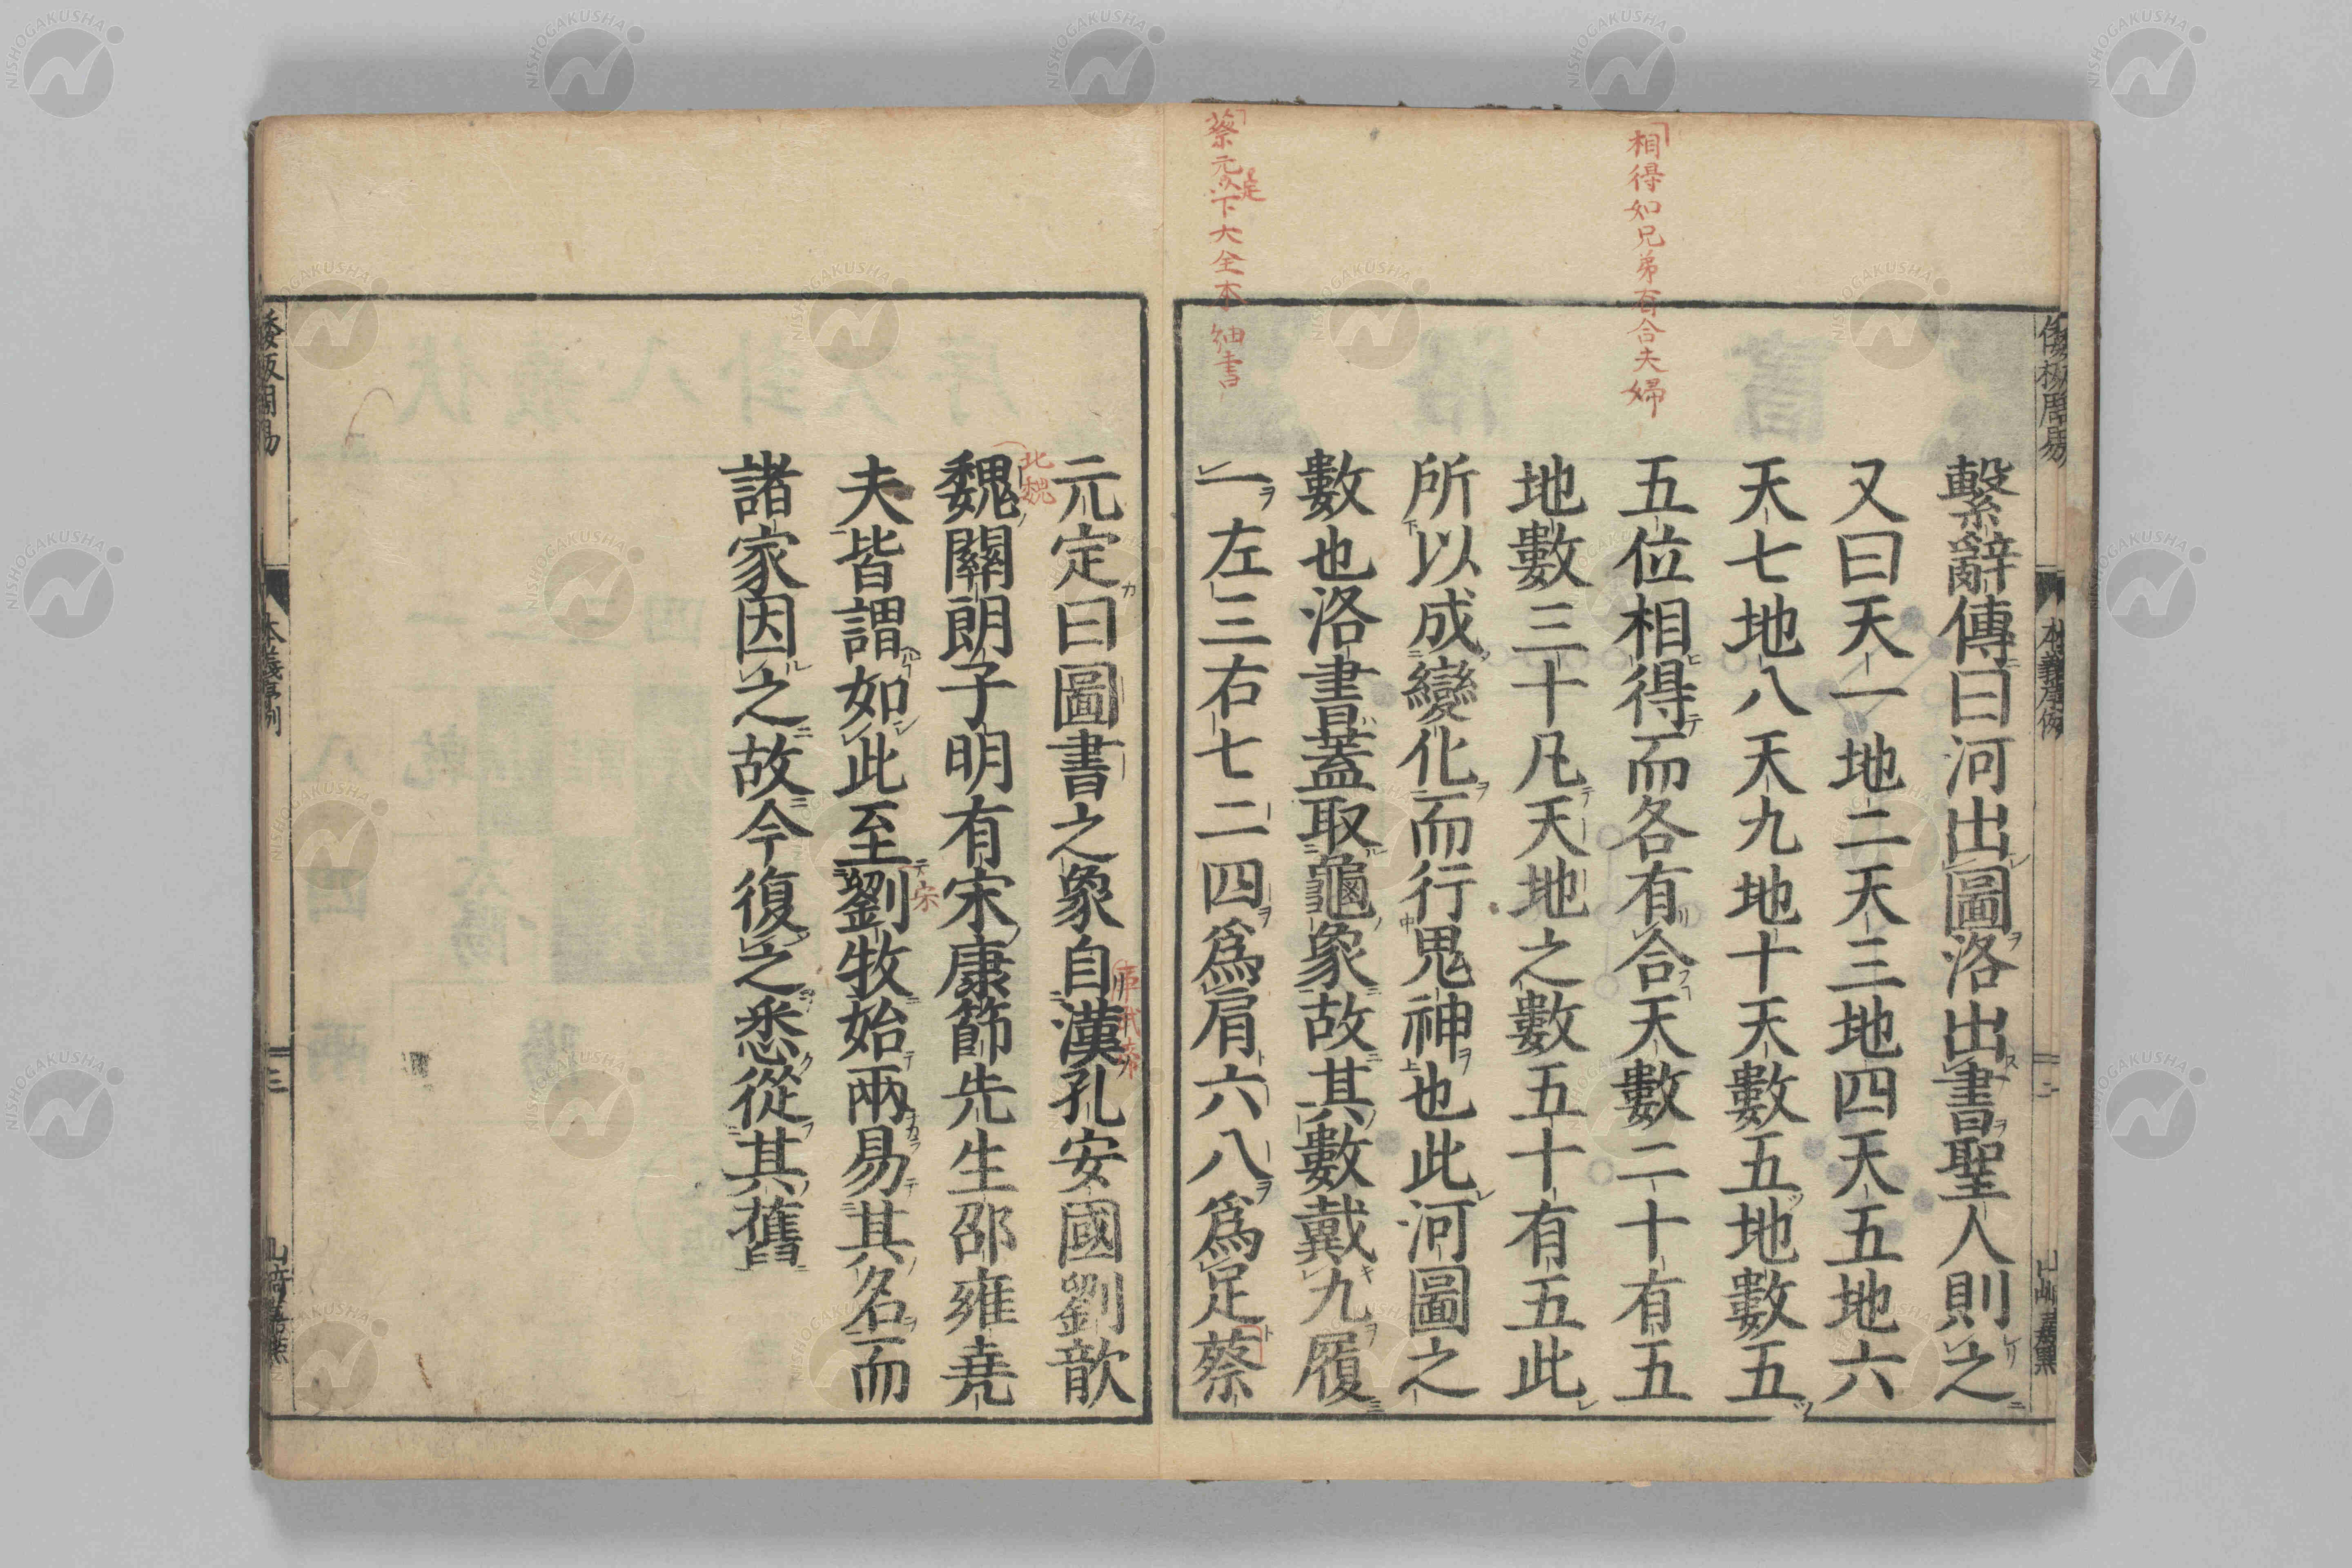 相得如兄弟有合夫婦
蔡元定下大全本細書
倭板周易
本義序例
二
山崎嘉點
繫辭傳曰河出圖洛出書聖人則之
又曰天一地二天三地四天五地六
天七地八天九地十天數五地數五
五位相得而各有合天數二十有五
地數三十凡天地之數五十有五此
所以成變化而行鬼神也此河圖之
數也洛書蓋取龜象故其數戴九履
一左三右七二四爲肩六八爲足蔡
元定曰圖書之象自漢孔安國劉歆
北魏
魏關朗子明有宋康節先生邵雍堯
夫皆謂如此至劉牧始兩易其名而
宋
諸家因之故今復之悉從其舊
倭板周易
本義序例
三
山崎嘉點
NISHOGAKUSHA